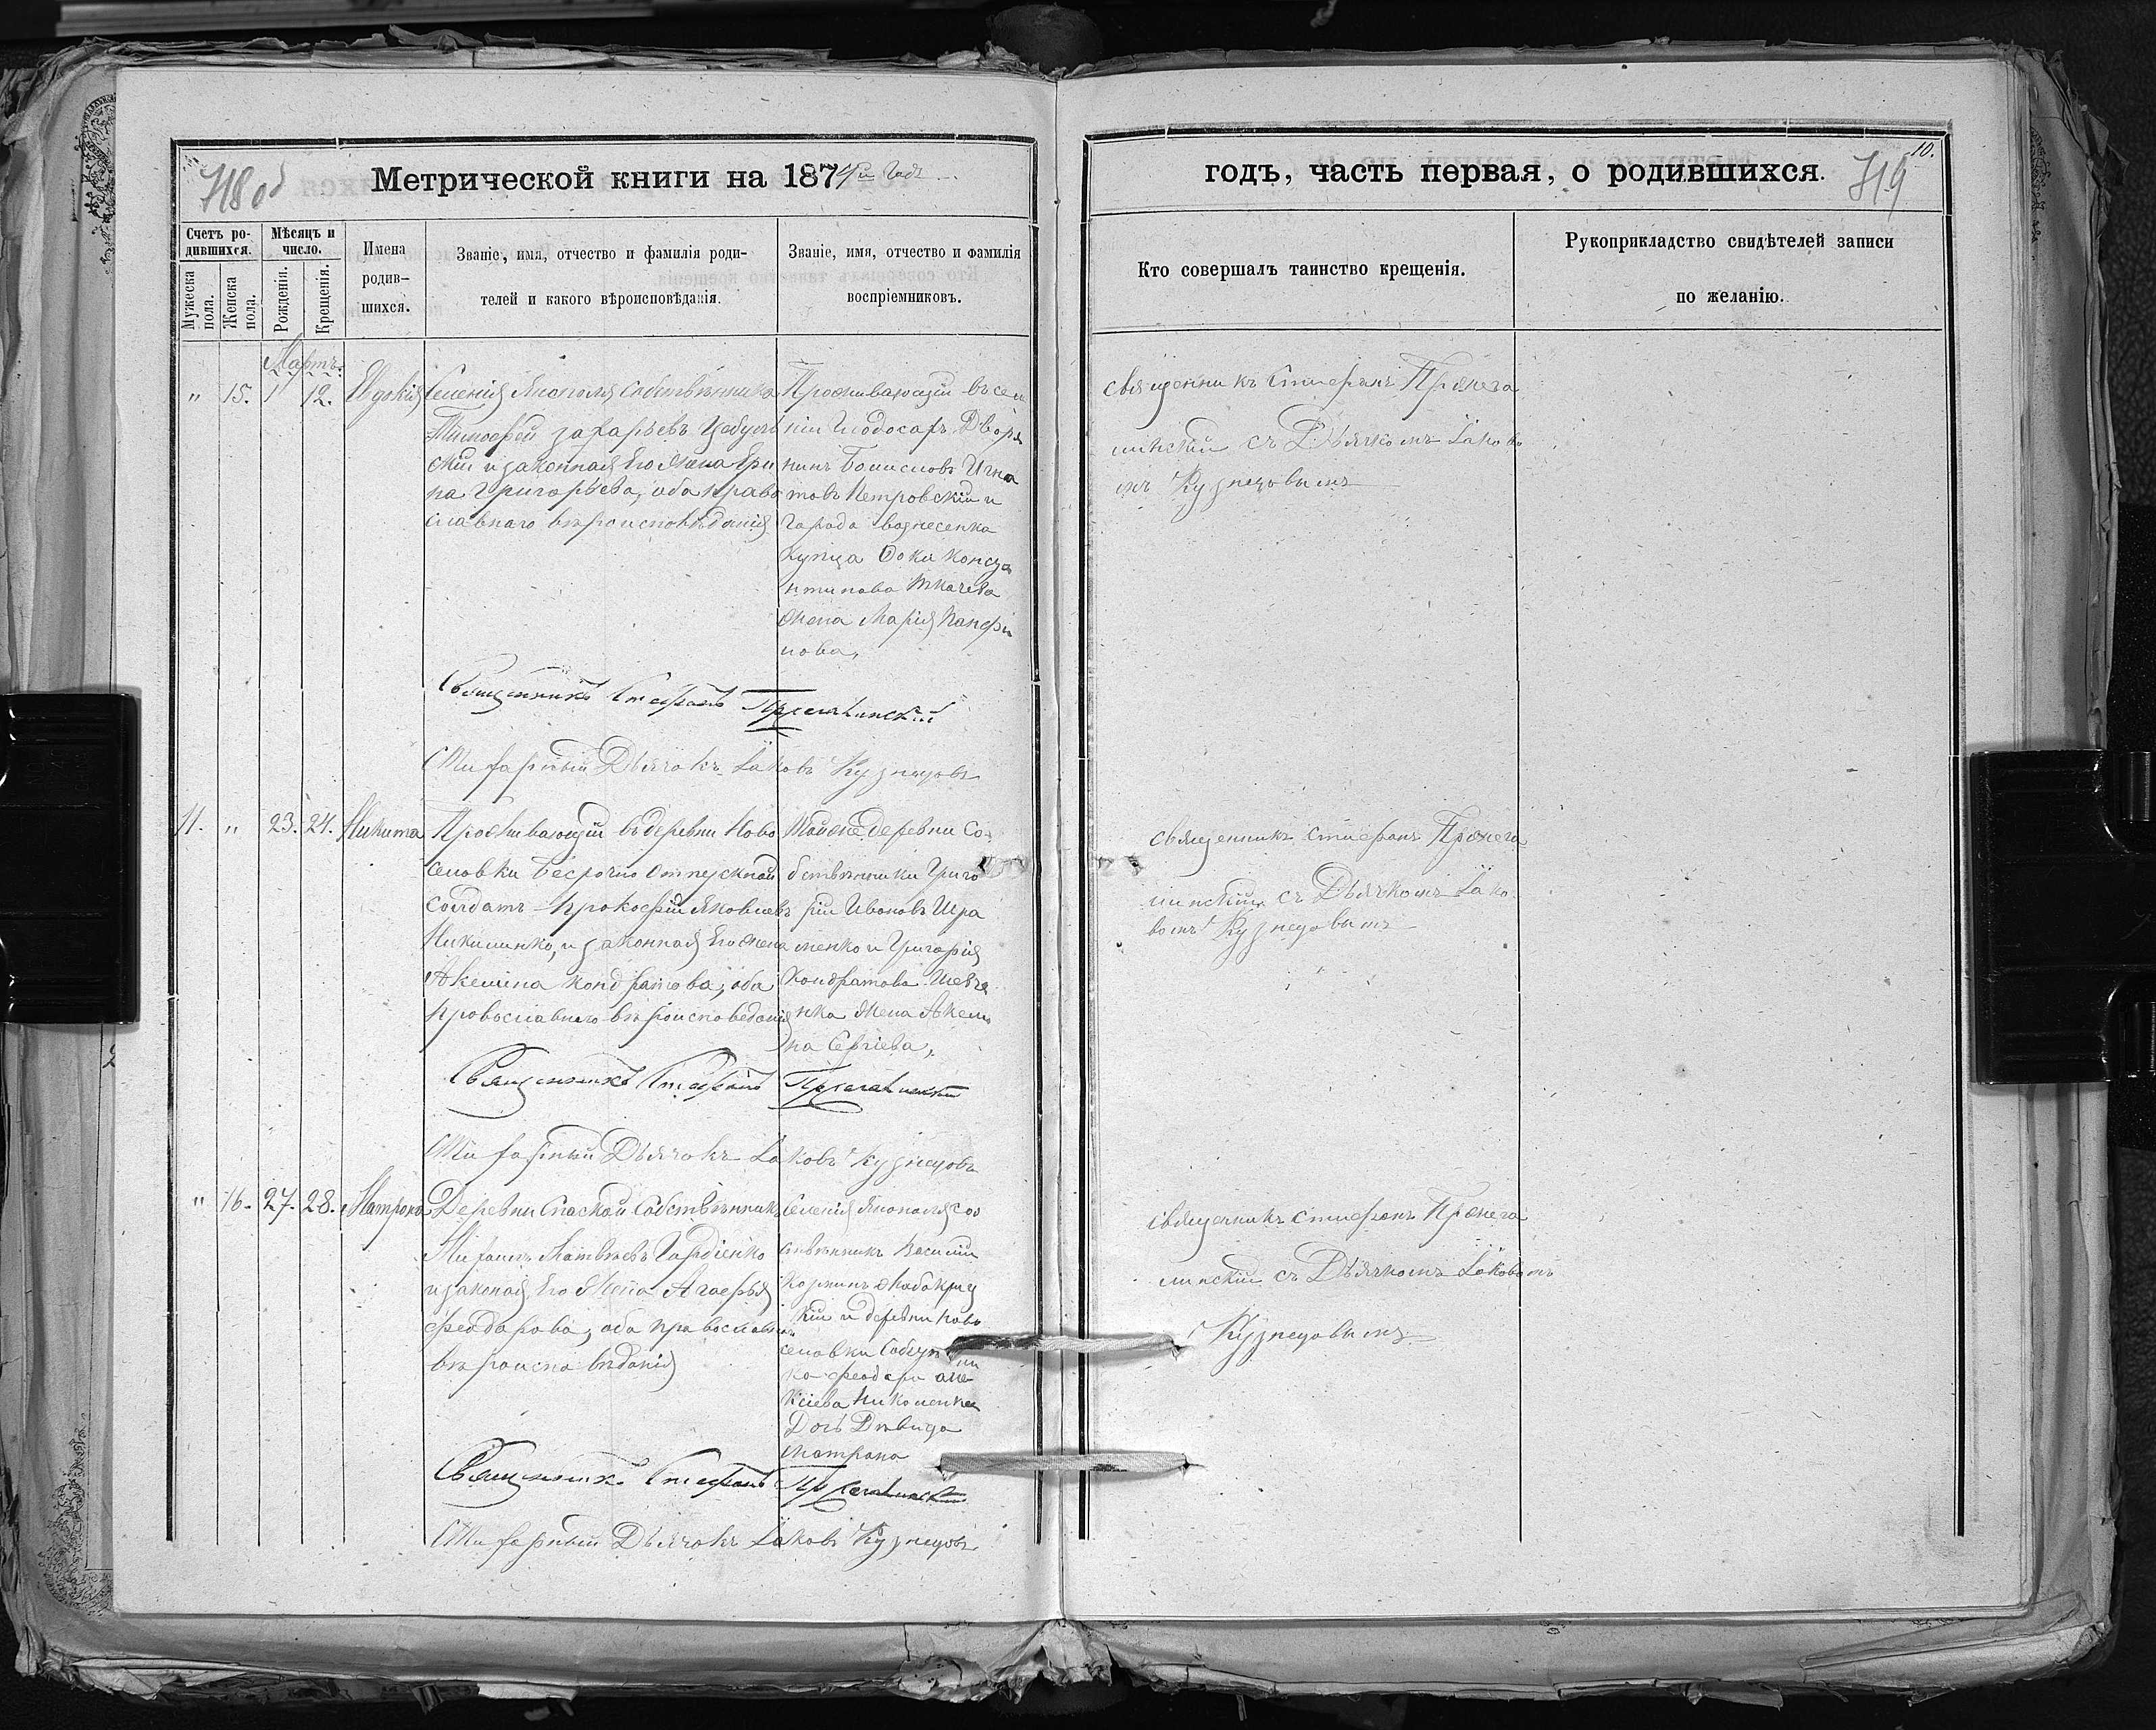 718 об
Метрической книги на 1874й Годъ
Счетъ ро-
дившихся.
Мѣсяцъ и
число.
Мужеска
пола.
Женска
пола.
Рожденія.
Крещенія.
Имена
родив-
шихся.
Званіе, имя, отчество и фамилія роди-
телей и какого вѣроисповѣданія.
Званіе, имя, отчество и фамилія
воспріемниковъ.
Мартъ.
" 15. 1 12. Евдокія
Селенія Яснополя собственника
Тимофей Захарьевъ
скій и законная Его жена Ери
на Григорьева, оба право
славнаго вѣроисповѣданія
Проживающій въ селе
ніи Дворя
нинъ Игна
товъ Петровскій и
Города вознесенка
Купца Фоки Конста
нтинова Ткачева
жена Марія Панфи
лова,
Священникъ Стефанъ
Дьячокъ Іаковъ Кузнецовъ
11. " 23. 24. Никита
Проживающій въ деревни Ново
селовки безсрочно отпускной
Солдатъ Прокофій Яковлевъ
и законная Его жена
Акелина Кондратова, оба
православнаго вѣроисповеданія
Тойже деревни Со-
бственники Григо
рій Ивановъ
менко и Григорія
Кондратова Шевче
нка жена Акели
на Сергіева,
Священникъ Стефанъ
Дьячокъ Іаковъ Кузнецовъ
" 16. 27. 28. Матрона
Деревни Спаской Собственникъ
Матвѣевъ Гордіенко
и законая Его Жена Агаефья
Феодорова, оба православнаго
вѣроисповѣданія
Селенія Яснополя соб
ственникъ Василій
кій и деревни Ново
селовки
ка Феодора Але
ксіева Николенка
Дочь Дѣвица
Матрона
Священникъ Стефанъ
Дьячокъ Іаковъ Кузнецовъ
10.
годъ, часть первая, о родившихся.
719
Кто совершалъ таинство крещенія.
Рукоприкладство свидѣтелей записи
по желанію.
священникъ Стиефанъ
съ Дьячкомъ Іаково
мъ Кузнецовымъ
священникъ Стиефанъ
съ Дьячкомъ Іако
вомъ Кузнецовымъ
священникъ Стиефанъ
съ Дьячкомъ Іаковомъ
Кузнецовымъ